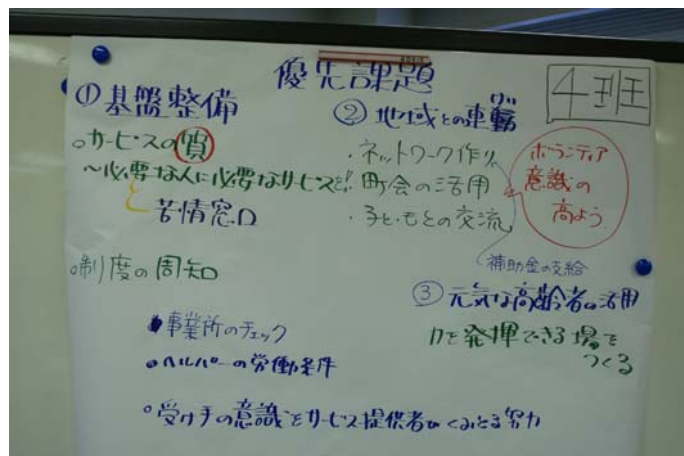 優先課題
4班
①基盤整備
○サービスの質
～必要な人に必要なサービスを!!
苦情窓口
○制度の周知
事業所のチェック
○ヘルパーの労働条件
○受け手の意識をサービス提供者がくみとる努力
②地域との連動
・ネットワーク作り
・町会の活用
・子どもとの交流
ボランティア
意識の
高よう
補助金の支給
③元気な高齢者の活用
力を発揮できる場を
つくる